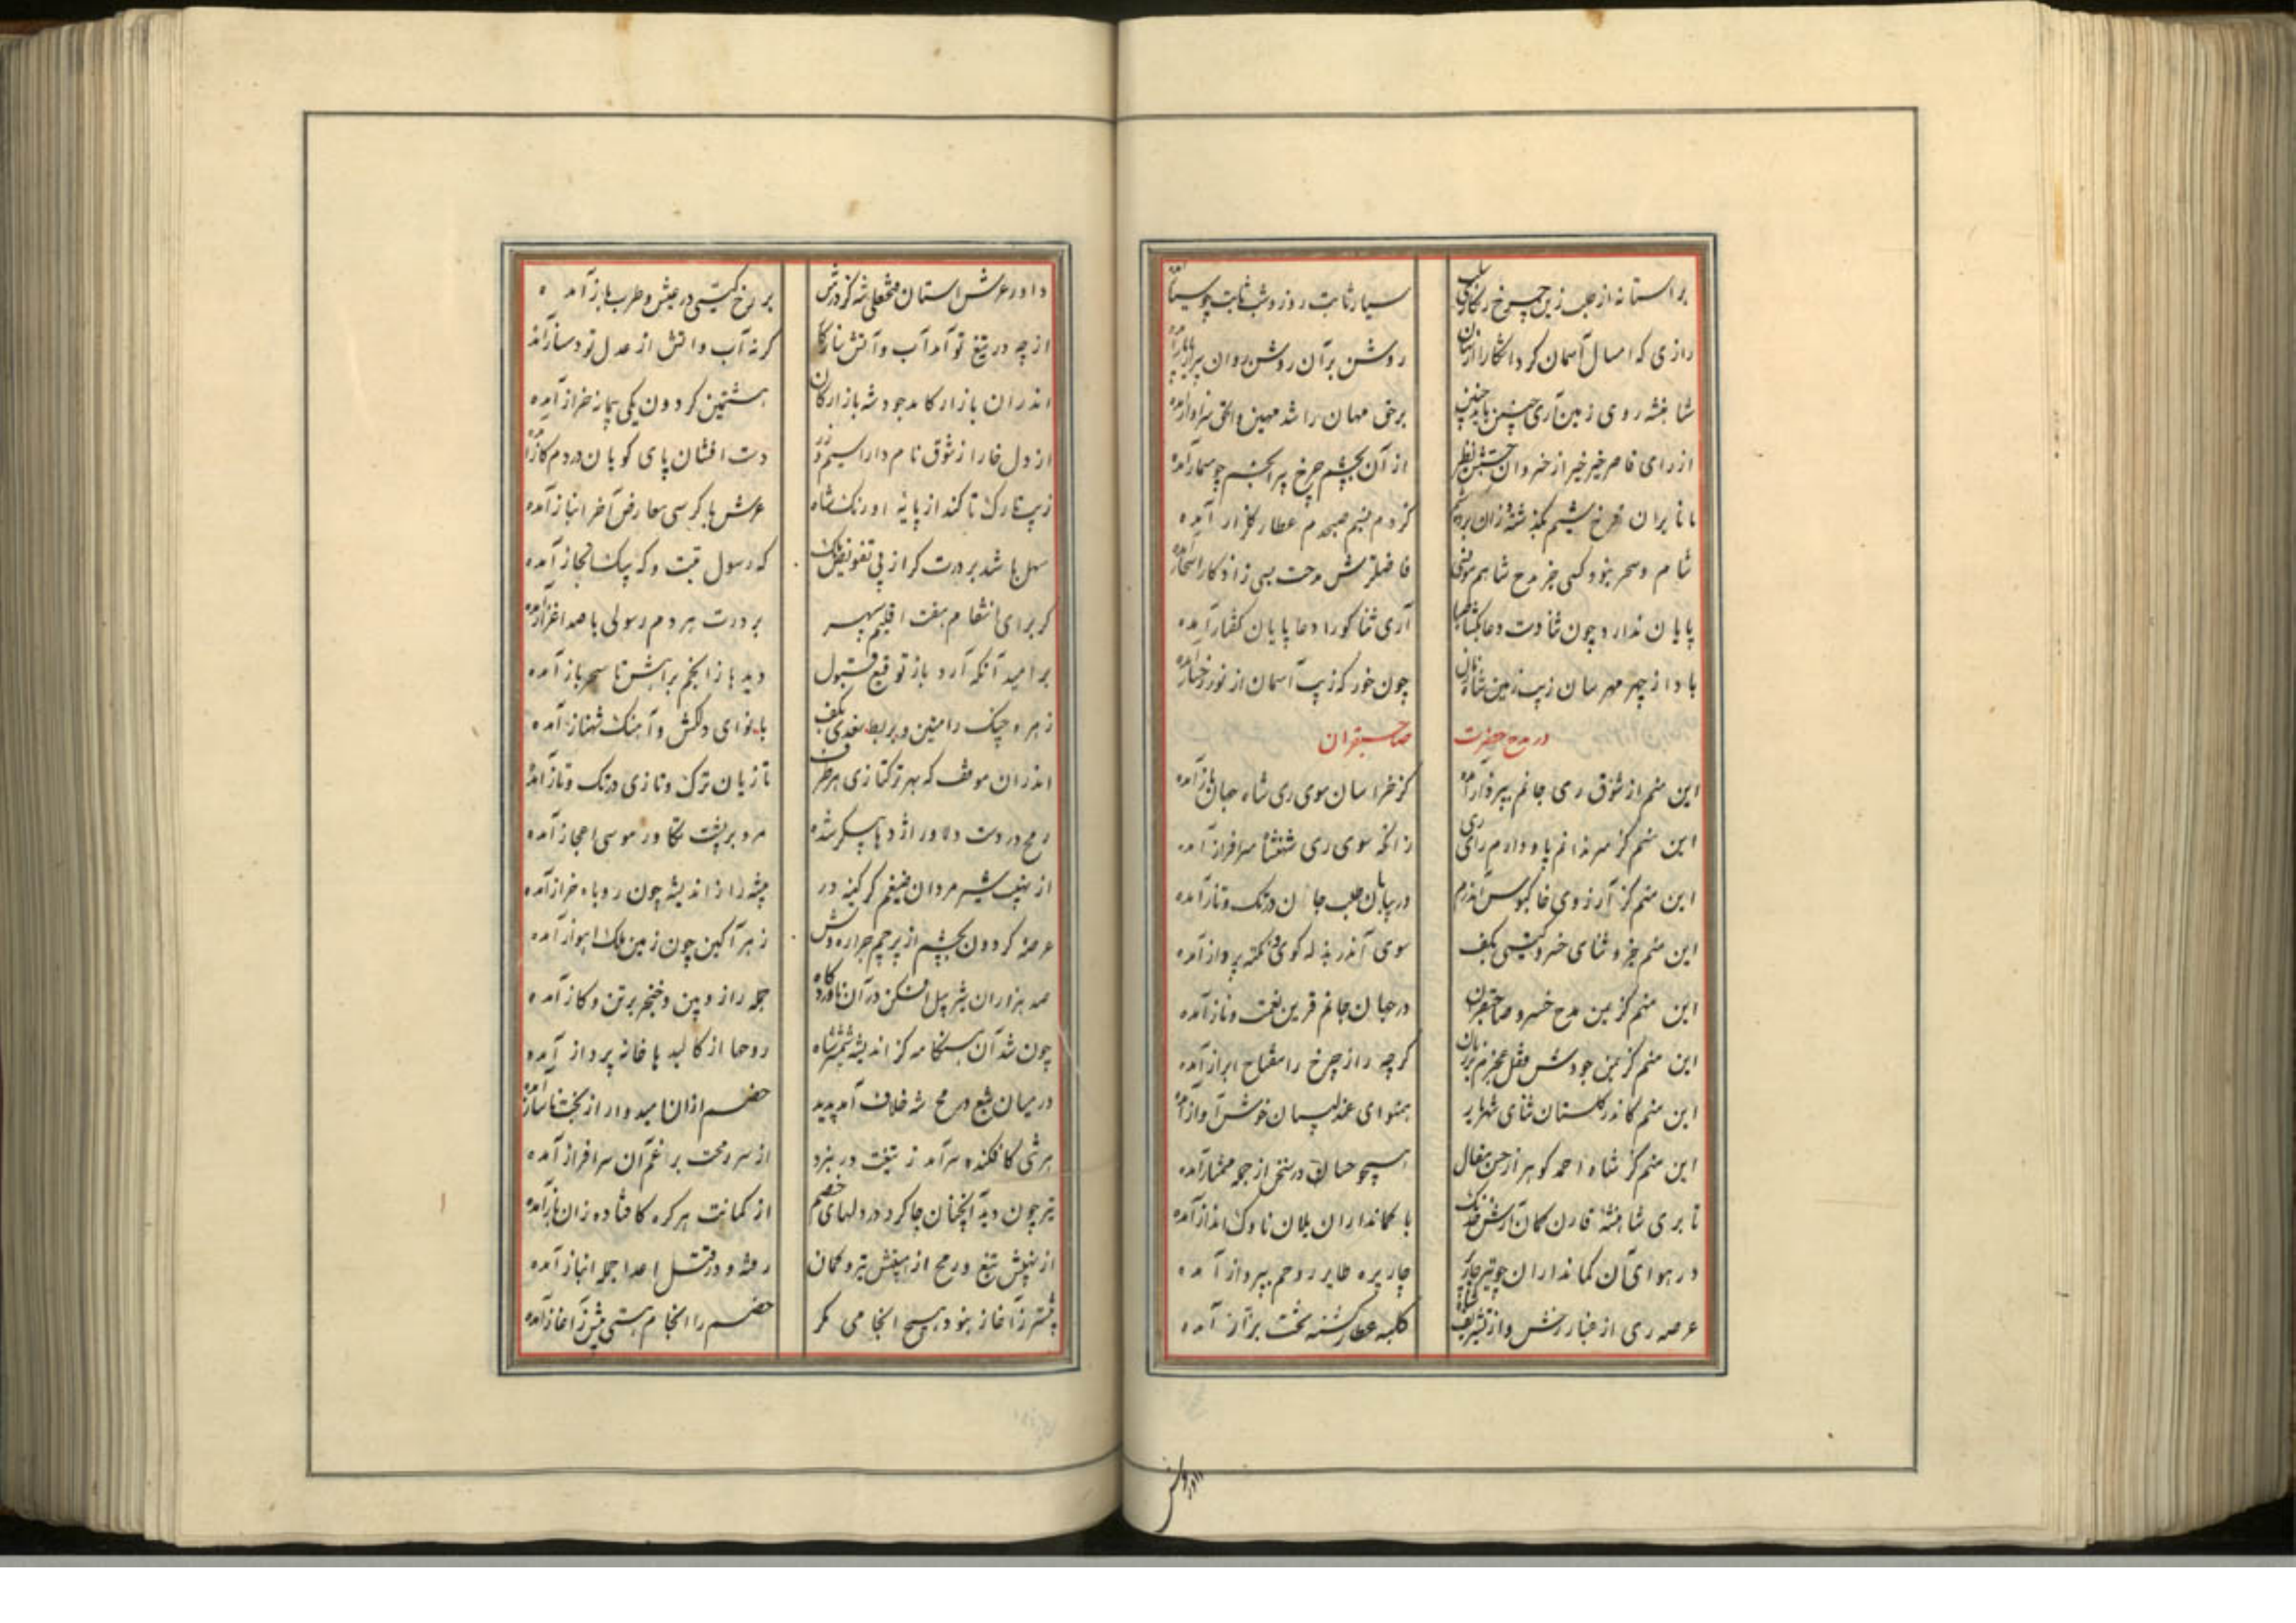 بر آستانه از حلب زین چرخ زنگاری سلب سیار ثابت روز و شب ثابت چو سیار آمده
رازی که امسال آسمان کرد آشکارا روشن بر آن روشن روان
شاهنشه روی زمین آری چنین باید چنین برخی مهان را شد مهین والحق سزاوار آمده
از رای قاصر خیر خیر از خسروان جستش نظیر از آن بچشم چرخ پیر انجم چو مسمار آمده
مانا بران فرخ شیم بگذشته وزان کز دم نسیم صبحدم عطار گلزار آمده
شام و سحر نبود کسی جز مدح شاهم مونسی فاضلترش مدحت بسی ز اذکار اسحار آمده
پایان ندارد چون ثنا وقت دعا بگشا صبا آری ثناگو را دعا پایان گفتار آمده
بادا ز چهر مهرسان زیب زمین شاه زمان چون خور که زیب آسمان از نور رخسار آمده
در مدح حضرت صاحبقران
این منم از شوق ری جانم بپرواز آمده کز خراسان سوی ری شاه جهان باز آمده
این منم کز سر ندانم پا و دارم رای ری زانکه سوی ری شهنشاه سرافراز آمده
این منم کز آرزوی خاکبوس آن درم در بیابان طلب جان در تک و تاز آمده
این منم جزو ثنای خسرو گیتی بکف سوی آن در بذله گوی و نکته پرداز آمده
این منم کز یمن مدح خسرو صاحبقران در جهان جانم قرین نعمت و ناز آمده
این منم کز یمن جودش قفل عجزم بر زبان گرچه راز چرخ را مفتاح ابراز آمده
این منم کاندر گلستان ثنای شهریار همنوای عندلیبان خوش آواز آمده
این منم کز شاه احمد گوهر از حسن مقال همچو حسان در سخن از جمله ممتاز آمده
تا بری شاهنشه قارن کمان آرش خدنگ با کمانداران یلان ناوک انداز آمده
در هوای آن کمانداران چو تیر چارپر چارپره طایر روحم بپرواز آمده
عرصه ری از غبار رخش و از تشریف شاه کلبه عطار گشته تخت بزاز آمده
داورش
داور عرش آستان فتحعلی شه کز درش بر رخ گیتی در عیش و طرب باز آمده
از چه در تیغ تو آمد آب و آتش سازگار گر نه آب و آتش از عدل تو دمساز آمده
اندران بازار کامد جود شه بازارگان هشتمین گردون یکی پیمانه خراز آمده
از دل خارا ز شوق نام دارا سیم و زر دست افشان پای کوبان در دم گاز آمده
زیب تارک تا کند از پایه اورنگ شاه عرش با کرسی معارض آخر انباز آمده
سهل باشد بر درت گر از پی تفویض ملک گه رسول تبت و گه پیک ابخاز آمده
گر برای انتظام هفت اقلیم سپهر بر درت هر دم رسولی با صد اعزاز آمده
بر امید آنکه آرد باز توقیع قبول دیده‌ها ز انجم براهش تا سحر باز آمده
زهره چنگ رامتین و بربط سغدی بکف با نوای دلکش و آهنگ شهناز آمده
اندران موقف که بهر ترکتازی هر طرف تازیان ترک و تازی در تک و تاز آمده
رمح در دست دلاور اژدها پیکر شده مرد بر پشت تکاور موسی اعجاز آمده
از نهیب شیر مردان ضیغم گر کینه‌ور بیشه را ز اندیشه چون روباه خراز آمده
عرصه گردون بچشم از پرچم جراره وش زهرآگین چون زمین ملک اهواز آمده
صد هزاران شیر پیل افکن در آن ناوردگاه جمله را زوبین و خنجر برتن و گاز آمده
چون شد آن هنگامه کز اندیشه شمشیر شاه روح‌ها از کالبدها خانه پرداز آمده
در میان تیغ و رمح شه خلاف آمد پدید خصم ازان نامید وار از بخت ناساز آمده
هر تنی کافکنده سر آمد ز تیغت در نبرد از سر رمحت برغم آن سرافراز آمده
تیر چون دید آنچنان جا کرد در دلهای خصم از کمانت هر گره کافتاده زان باز آمده
از نهیبش تیغ و رمح از هیبتش تیر و کمان رفته و در قتل اعدا جمله انباز آمده
پیشتر ز آغاز نبود هیچ انجامی مگر خصم را انجام هستی پیش ز آغاز آمده